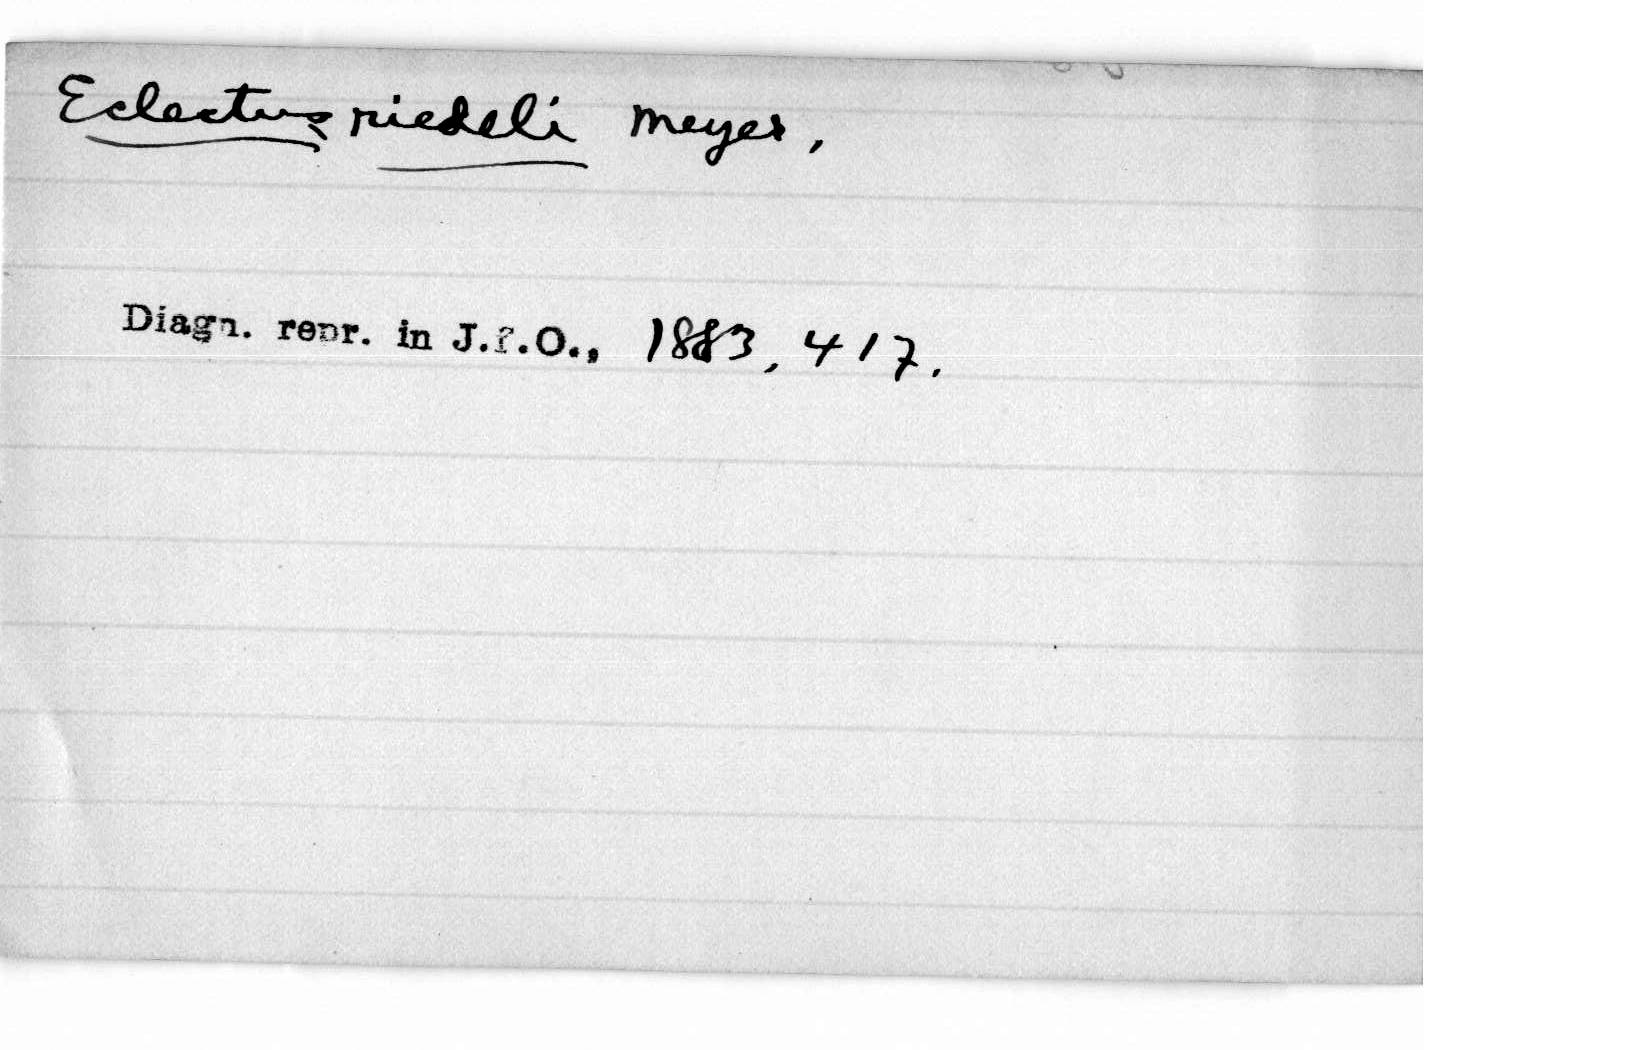 Eclectus riedeli Meyer,
Diagn. repr. in J.f.O., 1883, 417.